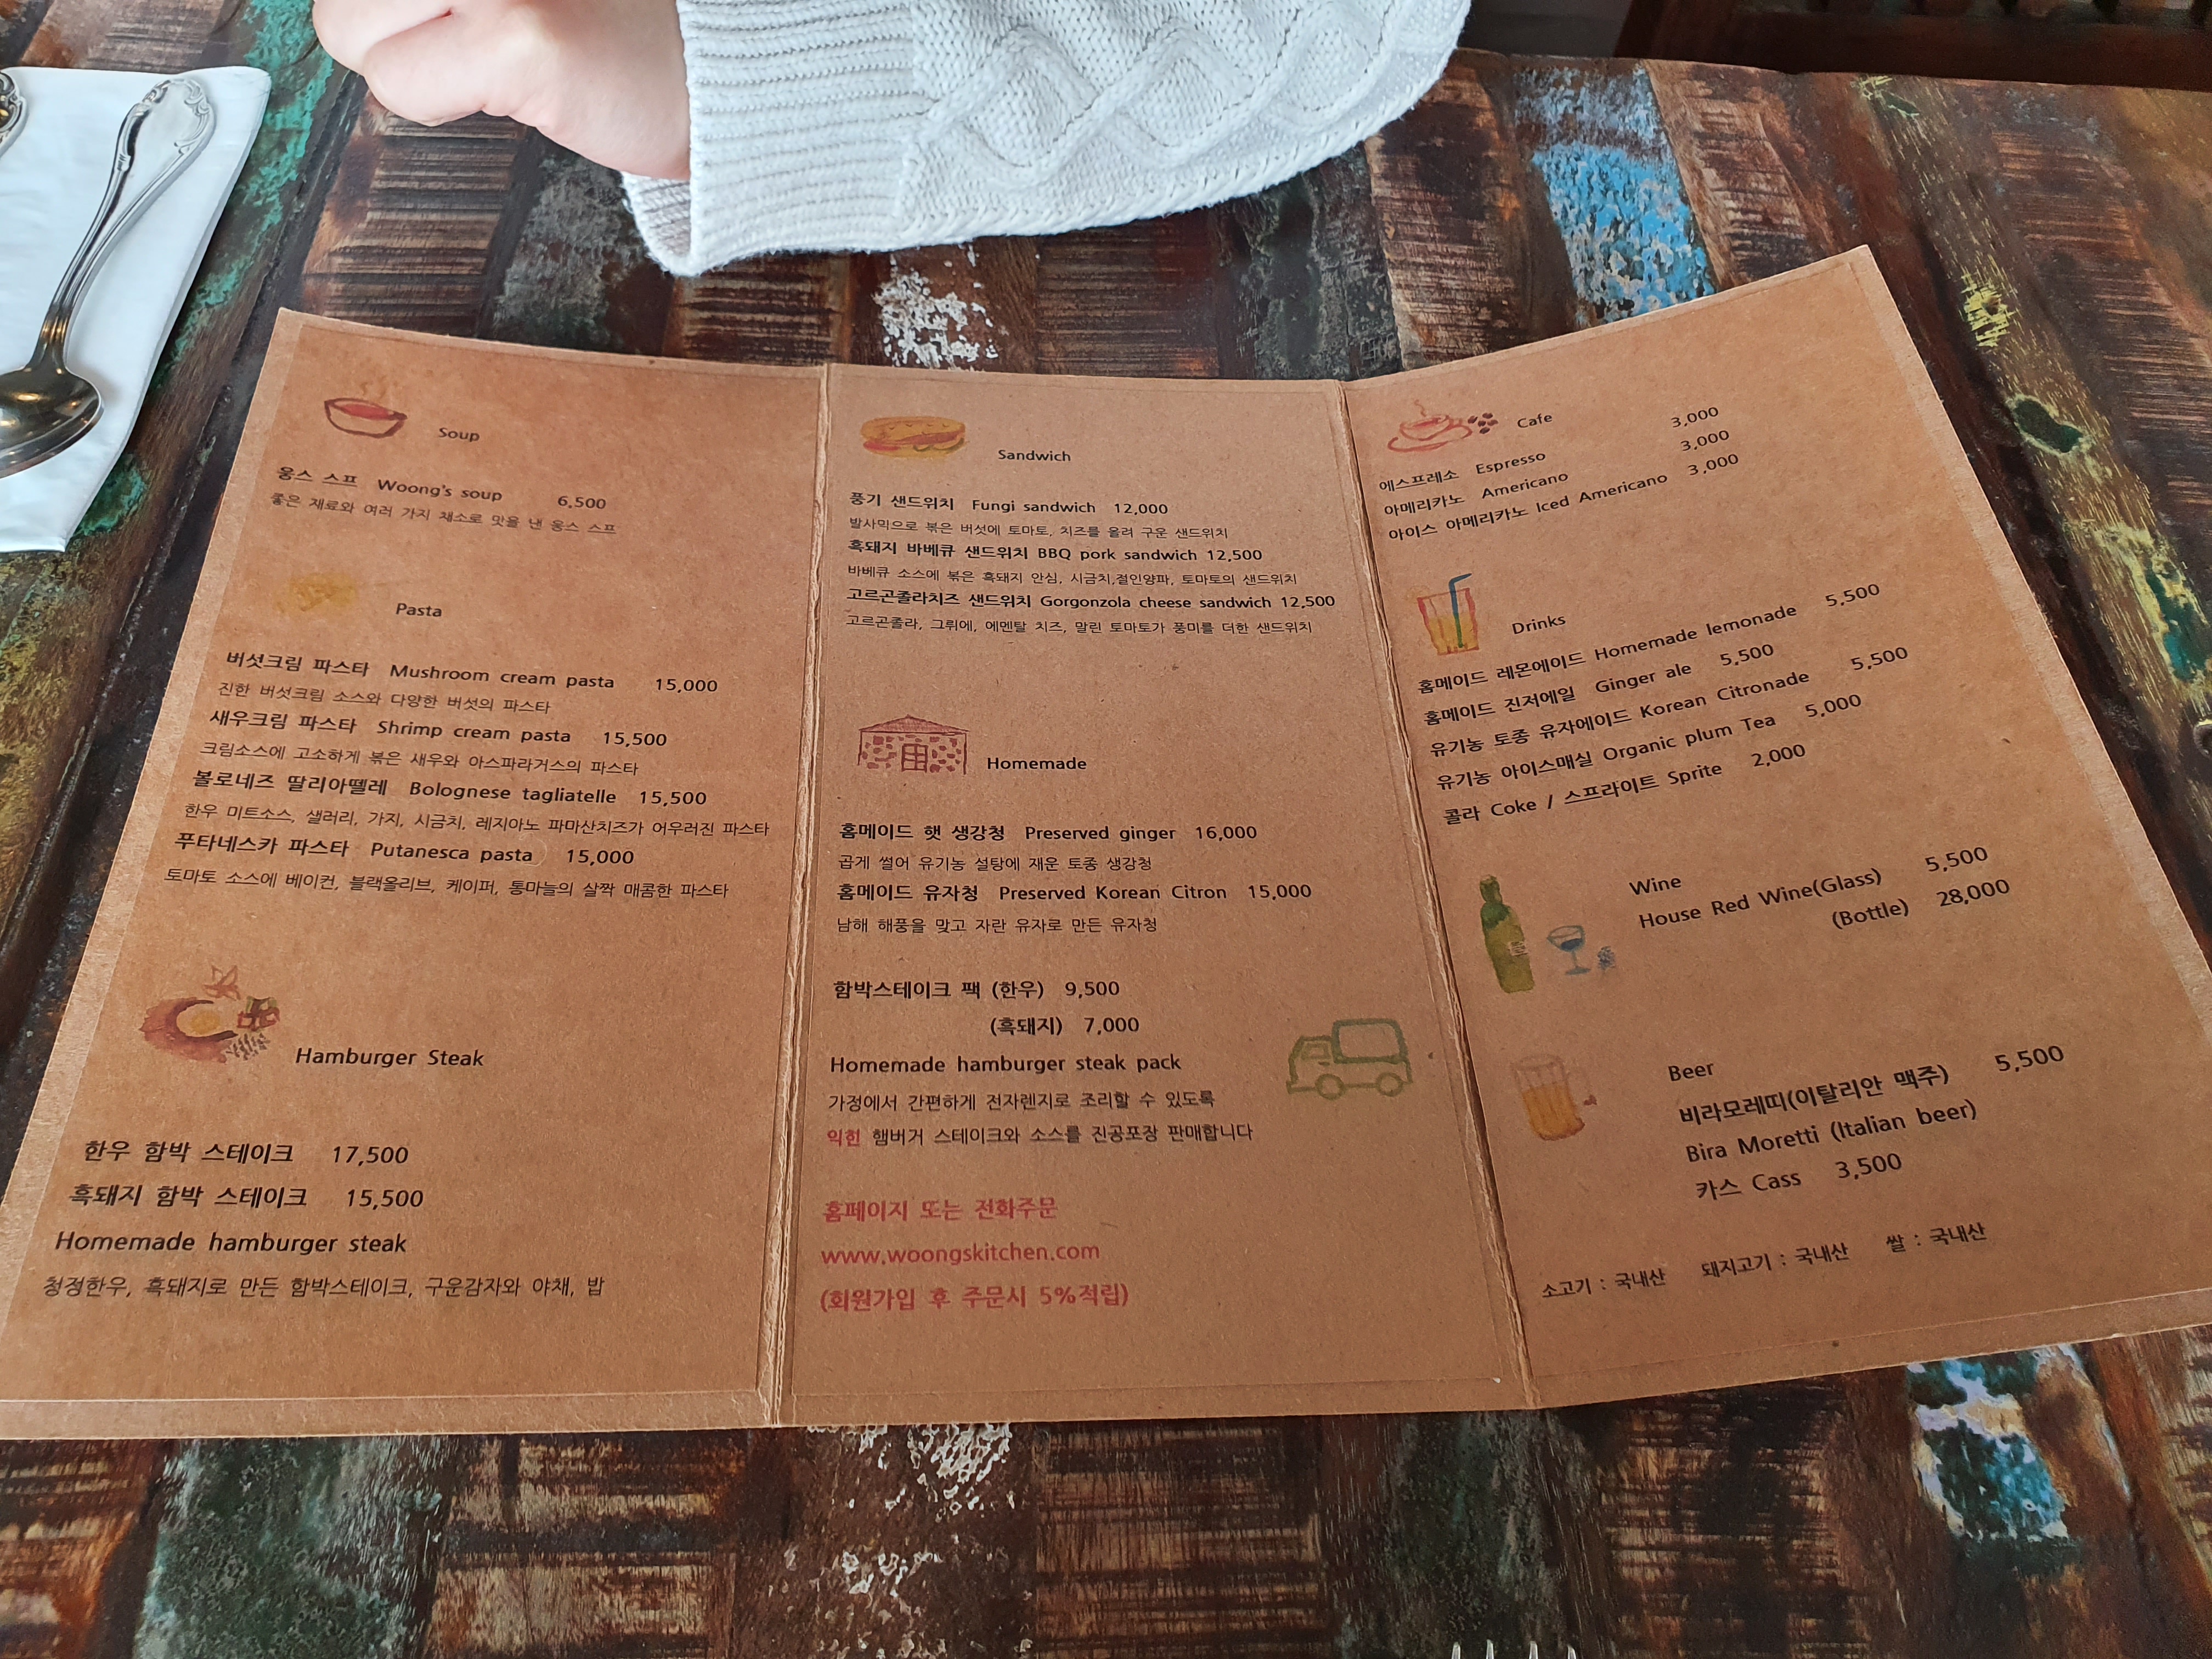 Soup
웅스 스프 Woong's soup 6,500
좋은 재료와 여러 가지 채소로 맛을 낸 웅스 스프
Pasta
버섯크림 파스타 Mushroom cream pasta 15,000
진한 버섯크림 소스와 다양한 버섯의 파스타
새우크림 파스타 Shrimp cream pasta 15,500
크림소스에 고소하게 볶은 새우와 아스파라거스의 파스타
볼로네즈 딸리아뗄레 Bolognese tagliatelle 15,500
한우 미트소스, 샐러리, 가지, 시금치, 레지아노 파마산치즈가 어우러진 파스타
푸타네스카 파스타 Putanesca pasta 15,000
토마토 소스에 베이컨, 블랙올리브, 케이퍼, 통마늘의 살짝 매콤한 파스타
Hamburger Steak
한우 함박 스테이크 17,500
흑돼지 함박 스테이크 15,500
Homemade hamburger steak
청정한우, 흑돼지로 만든 함박스테이크, 구운감자와 야채, 밥
Sandwich
풍기 샌드위치 Fungi sandwich 12,000
발사믹으로 볶은 버섯에 토마토, 치즈를 올려 구운 샌드위치
흑돼지 바베큐 샌드위치 BBQ pork sandwich 12,500
바베큐 소스에 볶은 흑돼지 안심, 시금치,절인양파, 토마토의 샌드위치
고르곤졸라치즈 샌드위치 Gorgonzola cheese sandwich 12,500
고르곤졸라, 그뤼에, 에멘탈 치즈, 말린 토마토가 풍미를 더한 샌드위치
Homemade
홈메이드 햇 생강청 Preserved ginger 16,000
곱게 썰어 유기농 설탕에 재운 토종 생강청
홈메이드 유자청 Preserved Korean Citron 15,000
남해 해풍을 맞고 자란 유자로 만든 유자청
함박스테이크 팩 (한우) 9,500
(흑돼지) 7,000
Homemade hamburger steak pack
가정에서 간편하게 전자렌지로 조리할 수 있도록
익힌 햄버거 스테이크와 소스를 진공포장 판매합니다
홈페이지 또는 전화주문
www.woongskitchen.com
(회원가입 후 주문시 5%적립)
Cafe
에스프레소 Espresso 3,000
아메리카노 Americano 3,000
아이스 아메리카노 Iced Americano 3,000
Drinks
홈메이드 레몬에이드 Homemade lemonade 5,500
홈메이드 진저에일 Ginger ale 5,500
유기농 토종 유자에이드 Korean Citronade 5,500
유기농 아이스매실 Organic plum Tea 5,000
콜라 Coke / 스프라이트 Sprite 2,000
Wine
House Red Wine(Glass) 5,500
(Bottle) 28,000
Beer
비라모레띠(이탈리안 맥주) 5,500
Bira Moretti (Italian beer)
카스 Cass 3,500
소고기 : 국내산 돼지고기 : 국내산 쌀 : 국내산